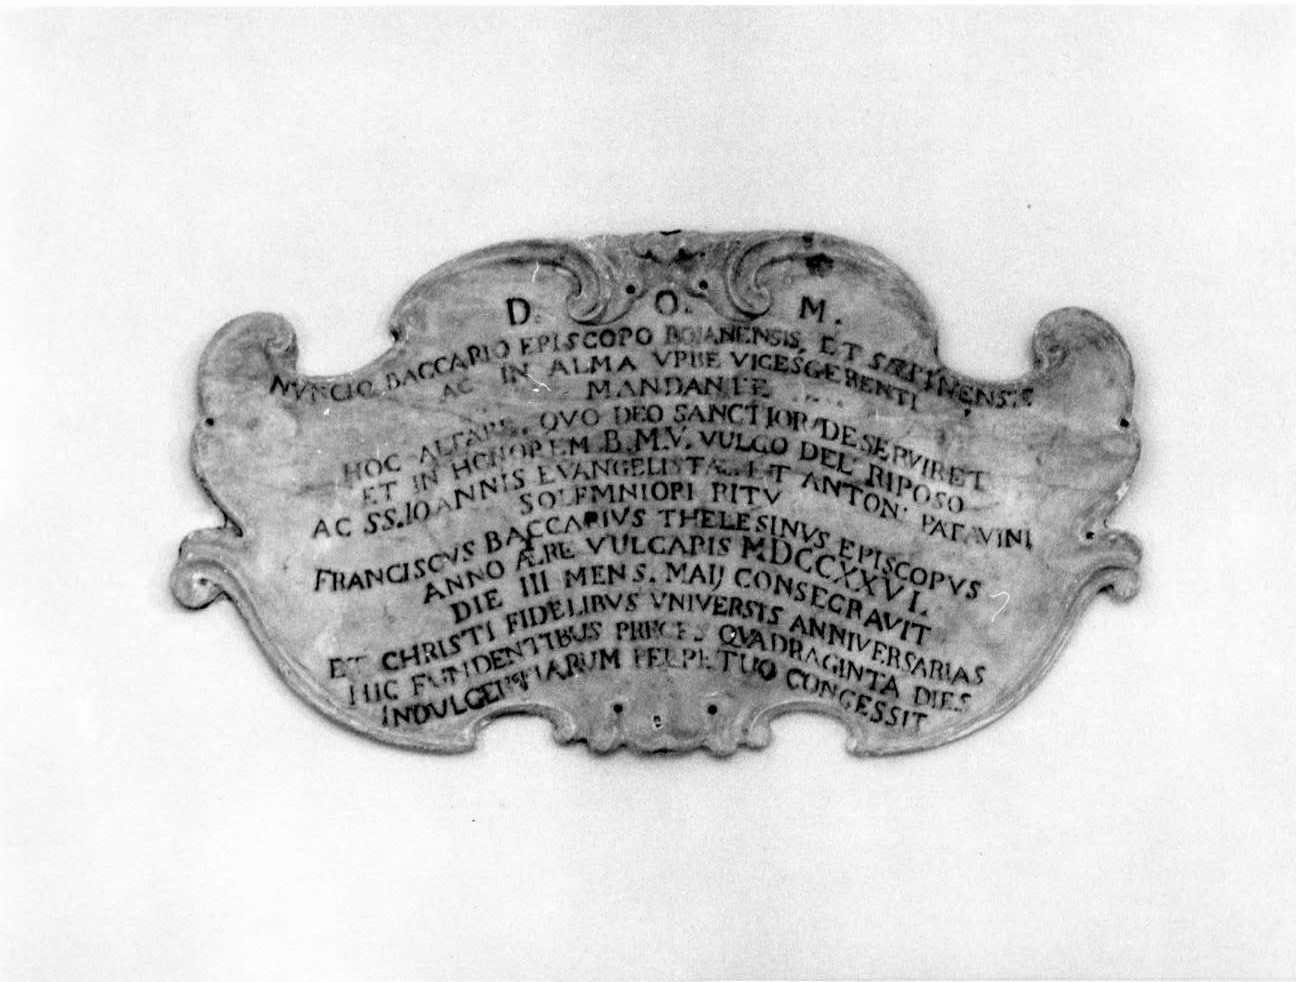 D. O. M.
NVNCIO BACCARIO EPISCOPO BOIANENSIS, ET SÆPINENSIS
AC IN ALMA VRBE VICESGERENTI
MANDANTE
HOC ALTARE, QVO DEO SANCTIOR DESERVIRET
ET IN HONOREM B.M.V. VULGO DEL RIPOSO
AC SS. IOANNIS EVANGELISTAE ET ANTON: PATAVINI
SOLEMNIORI RITV
FRANCISCVS BACCARIVS THELESINVS EPISCOPVS
ANNO ÆRE VULGARIS MDCCXXVI.
DIE III MENS. MAIJ CONSECRAVIT
ET CHRISTI FIDELIBVS VNIVERSIS ANNIVERSARIAS
HIC FUNDENTIBUS PRECES QVADRAGINTA DIES
INDULGENTIARUM PERPETUO CONCESSIT